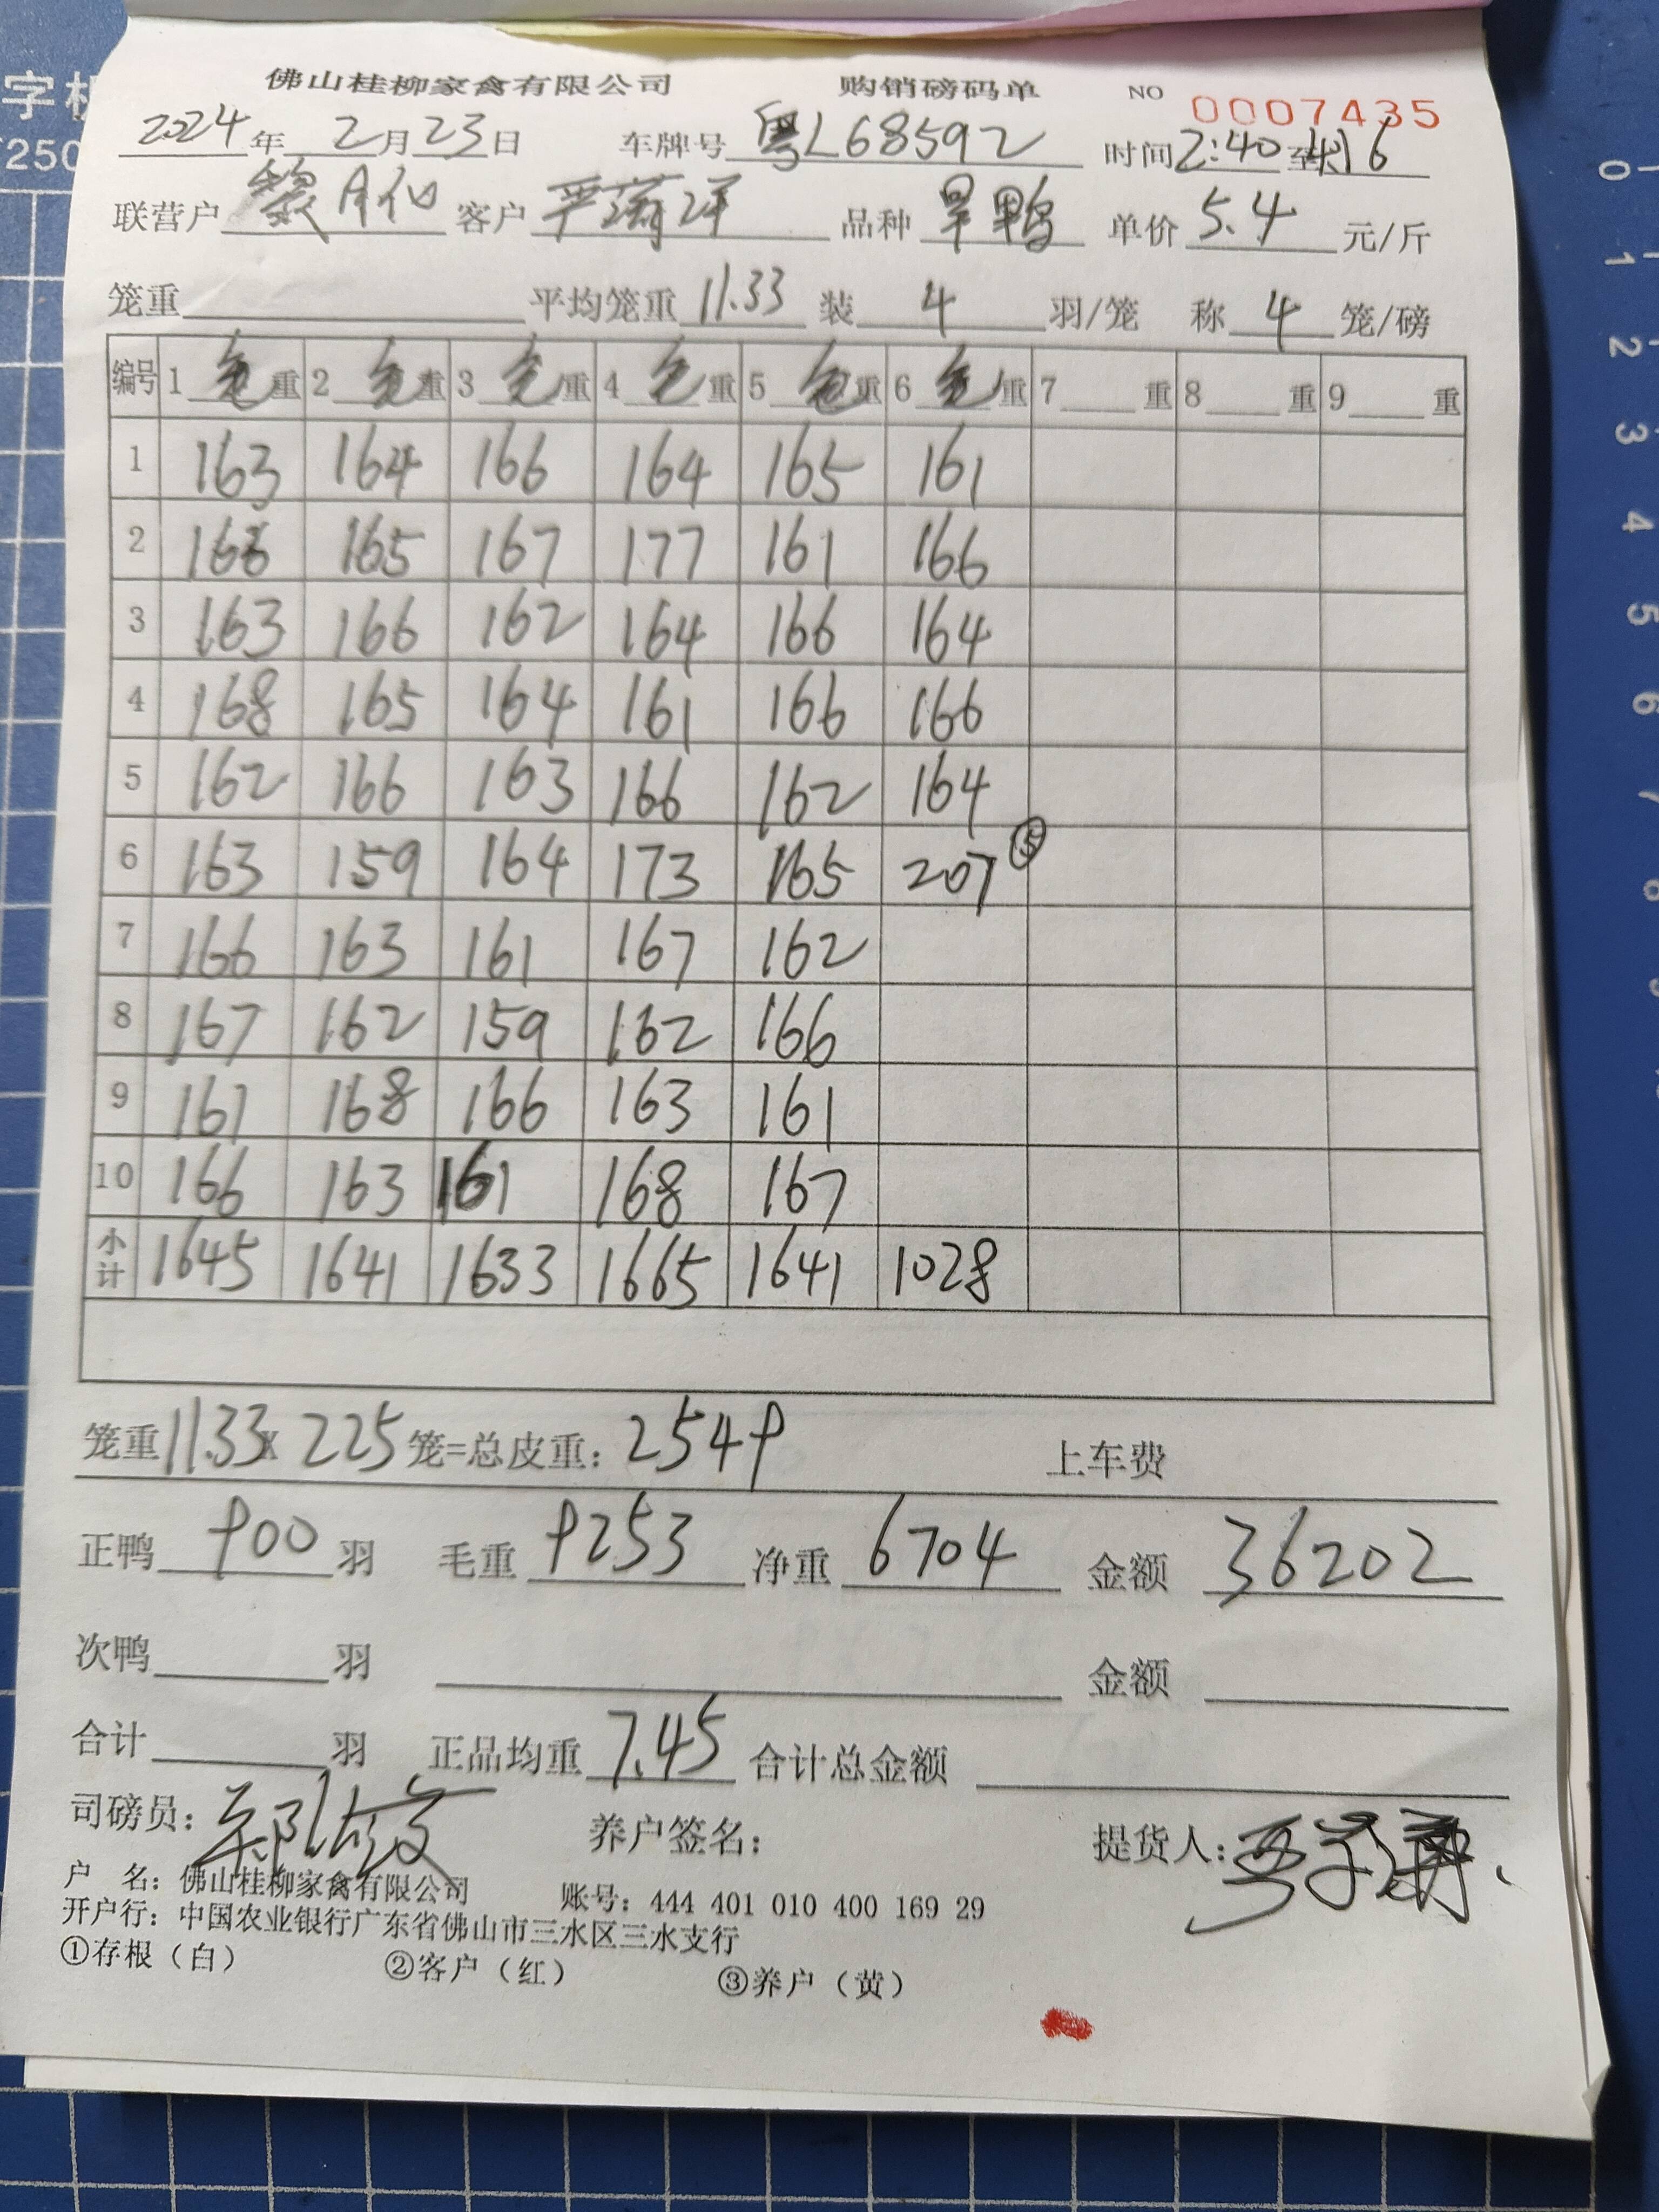 佛山桂柳家禽有限公司 购销磅码单 NO 0007435
2024年2月23日 车牌号 粤L68592 时间2:40至4:16
联营户 黎月仙 客户 严 洋 品种 旱鸭 单价 5.4 元/斤
笼重 平均笼重 11.33 装 4 羽/笼 称 4 笼/磅
编号 1 毛重 2 毛重 3 毛重 4 毛重 5 毛重 6 毛重 7 重 8 重 9 重
1 163 164 166 164 165 161
2 166 165 167 177 161 166
3 163 166 162 164 166 164
4 168 165 164 161 166 166
5 162 166 163 166 162 164
6 163 159 164 173 165 207 ⑤
7 166 163 161 167 162
8 167 162 159 162 166
9 161 168 166 163 161
10 166 163 161 168 167
小计 1645 1641 1633 1665 1641 1028
笼重11.33X 225 笼=总皮重: 2549 上车费
正鸭 900 羽 毛重 9253 净重 6704 金额 36202
次鸭 羽 金额
合计 羽 正品均重 7.45 合计总金额
司磅员: 养户签名: 提货人:
户 名: 佛山桂柳家禽有限公司 账号: 444 401 010 400 169 29
开户行: 中国农业银行广东省佛山市三水区三水支行
①存根(白) ②客户(红) ③养户(黄)
字
250
0
1
2
3
4
5
6
7
8
9